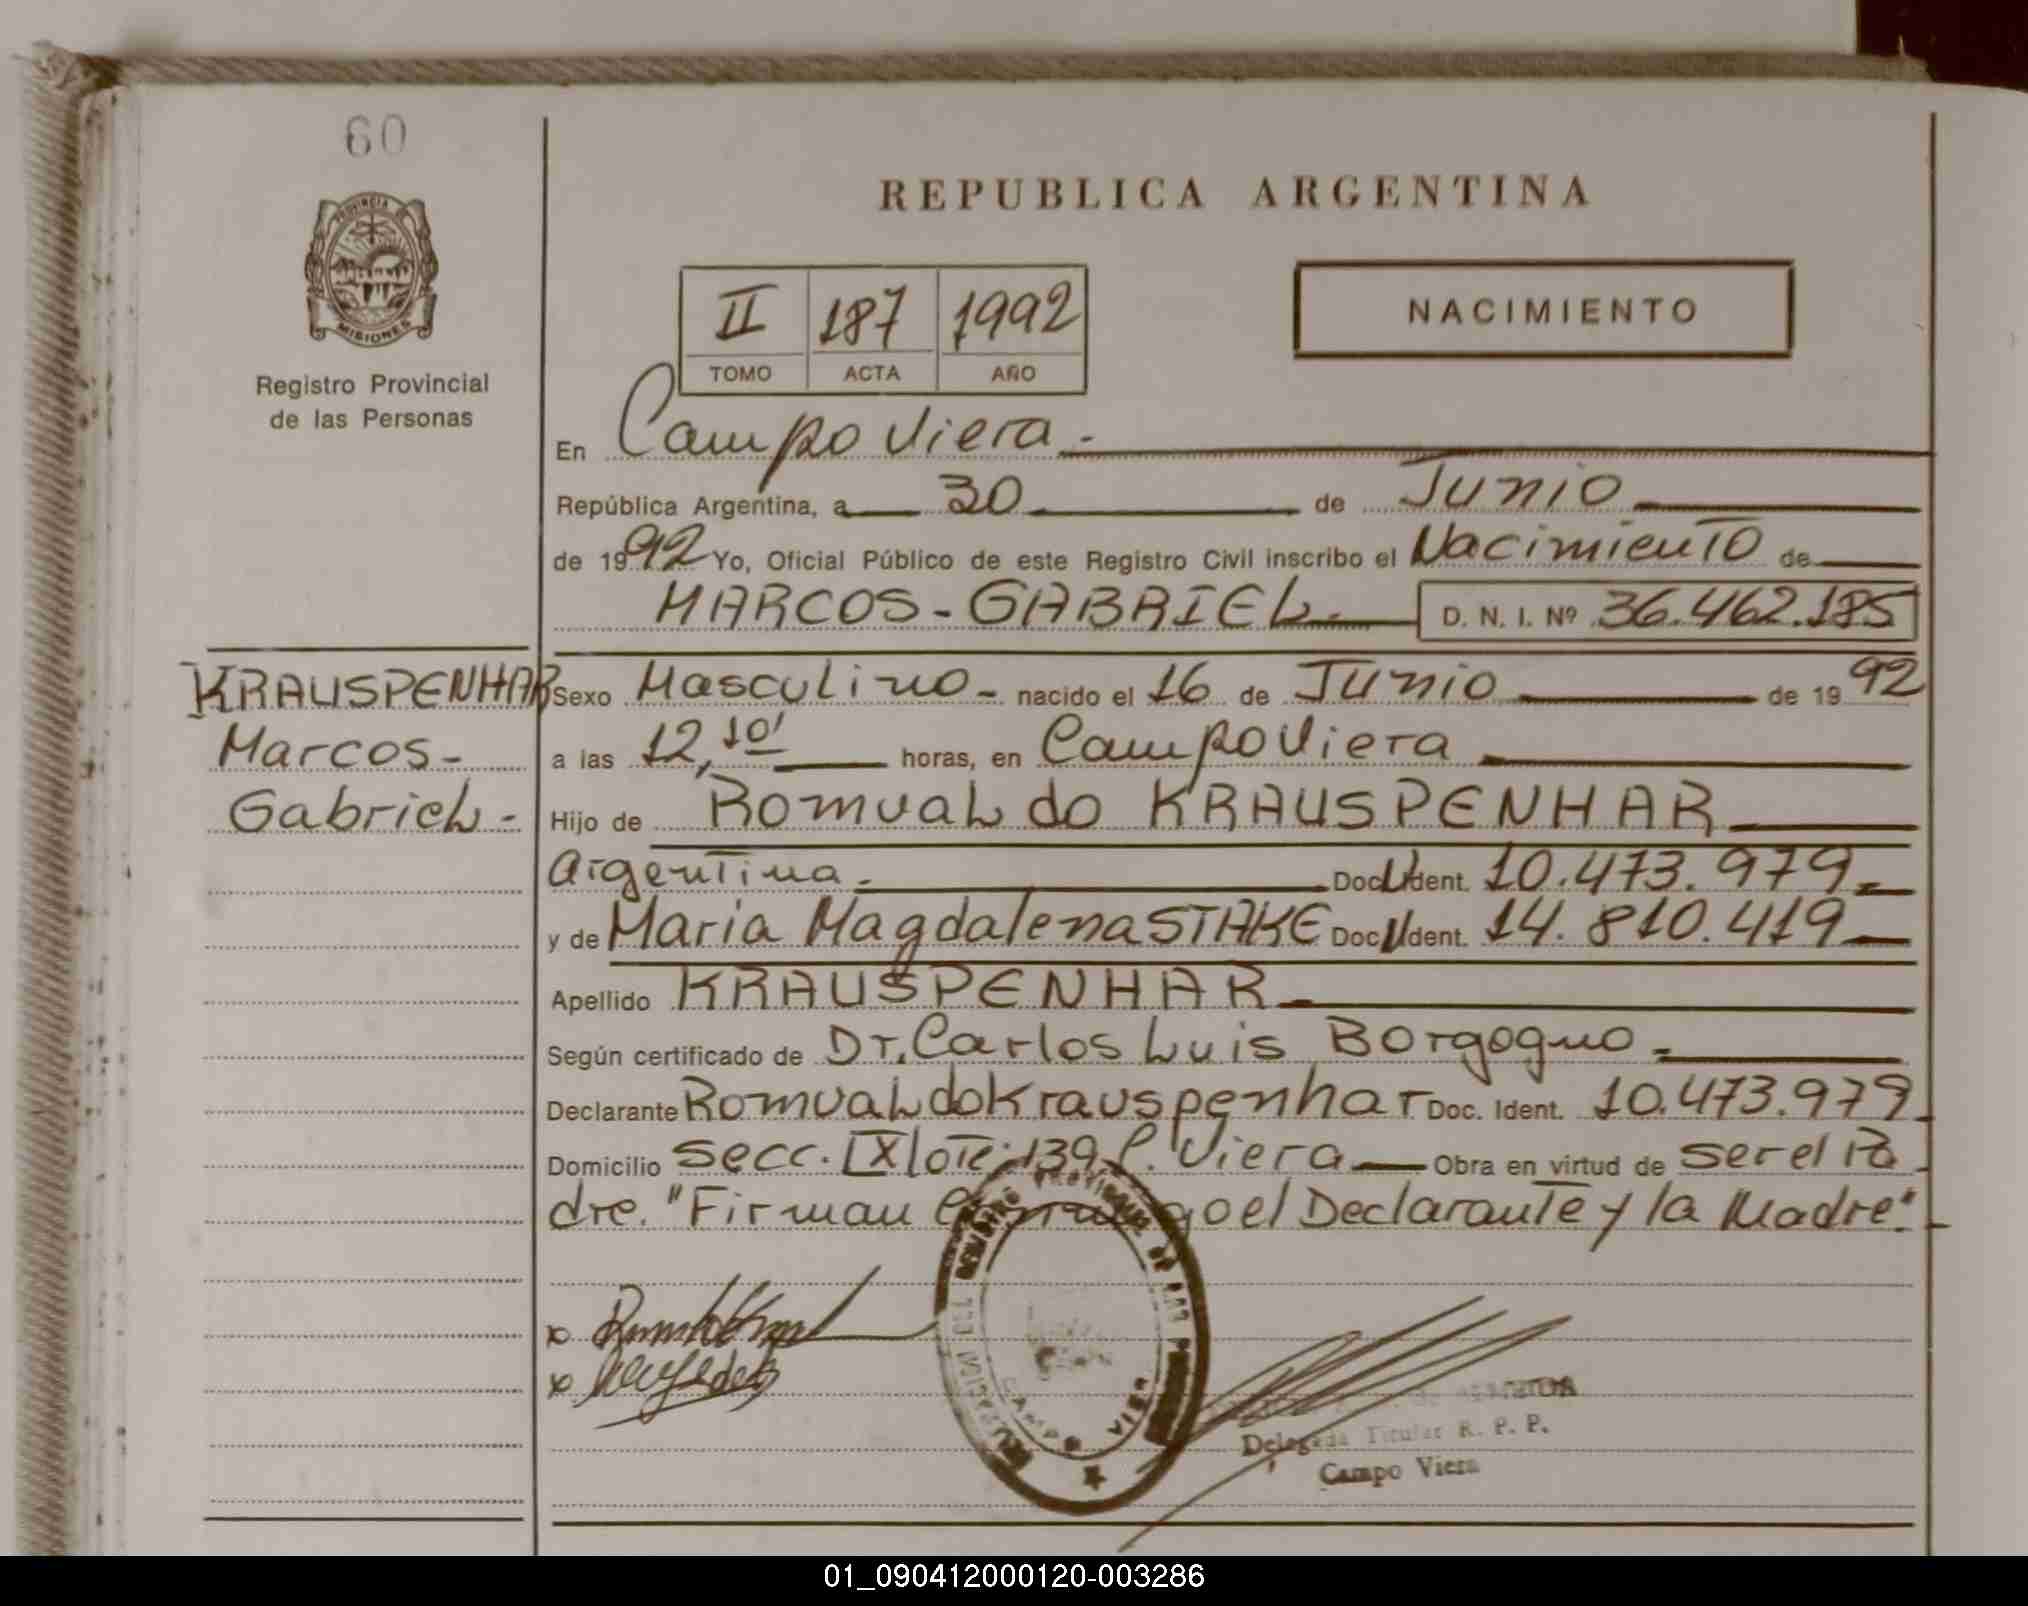 60
PROVINCIA DE
MISIONES
Registro Provincial
de las Personas
REPUBLICA ARGENTINA
II 187 1992
TOMO ACTA AÑO
NACIMIENTO
En Campo Viera.-
República Argentina, a 30 de Junio
de 1992 Yo, Oficial Público de este Registro Civil inscribo el Nacimiento de
MARCOS-GABRIEL.- D. N. I. Nº 36.462.185
KRAUSPENHAR
Marcos-
Gabriel-
Sexo Masculino- nacido el 16 de Junio de 1992
a las 12,10' horas, en Campo Viera
Hijo de Romualdo KRAUSPENHAR
Argentina.- Doc. Ident. 10.473.979-
y de Maria Magdalena STAKE Doc. Ident. 14.810.419
Apellido KRAUSPENHAR-
Según certificado de Dr. Carlos Luis Borgogno-
Declarante Romualdo Krauspenhar Doc. Ident. 10.473.979-
Domicilio Secc. IX lote 139 C. Viera Obra en virtud de ser el Pa
dre. "Firman el Declarante y la Madre".
Delegada Titular R. P. P.
Campo Viera
01_090412000120-003286